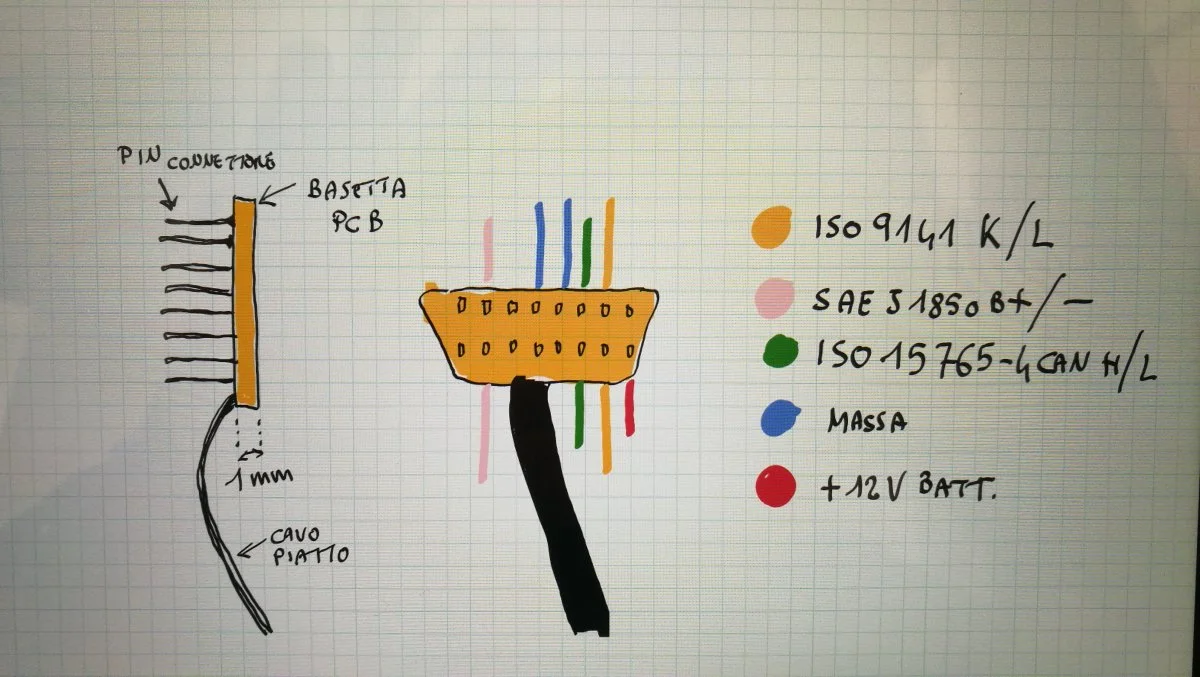 PIN CONNETTORE
BASETTA
PCB
1mm
CAVO
PIATTO
ISO 9141 K/L
SAE J1850 B+/-
ISO 15765-4 CAN H/L
MASSA
+12V BATT.